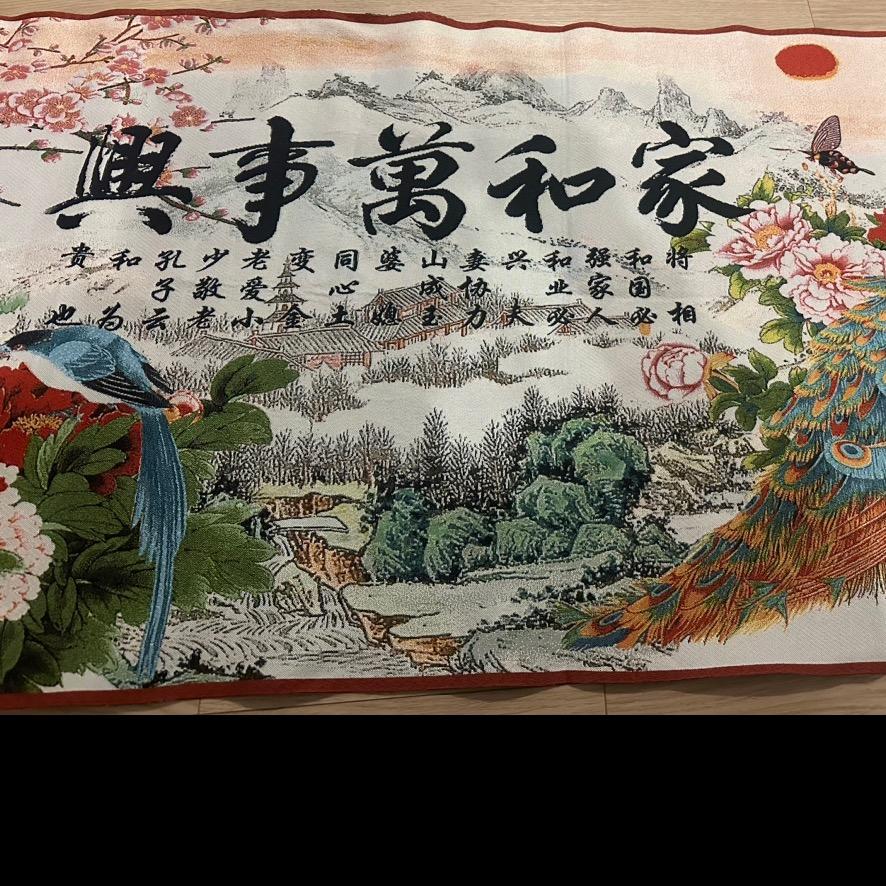 家和萬事興
将相
和国必
强家人
和业必
兴夫
妻协力
山成玉
婆媳
同心土
变金
老爱小
少敬老
孔子云
和为
贵也